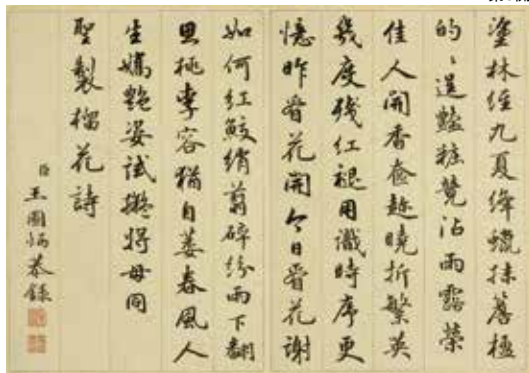 塗林經九夏絳蠟抹簷極
的〻逞豔粧凳沾雨露榮
佳人開香奩趁曉折繁英
幾度殘紅褪用識時序更
憶昨看花開今日看花謝
如何紅鮫綃剪碎紛雨下翻
思桃李容猶自萎春風人
生嬌艷姿試擬將毋同
聖製榴花詩
臣王圖炳恭錄